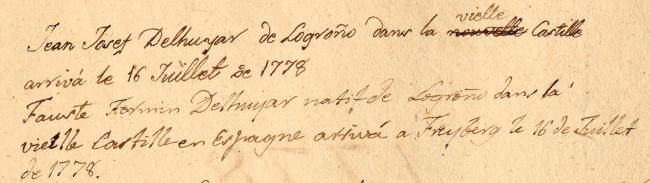 Jean Josef Delhuyar de Logroño dans la vielle nouvelle Castille
arrivá le 16 Juillet de 1778
Fauste Fermin Delhuyar natif de Logroño dans la
vielle Castille en Espagne arrivá a Freyberg le 16 de Juillet
de 1778.